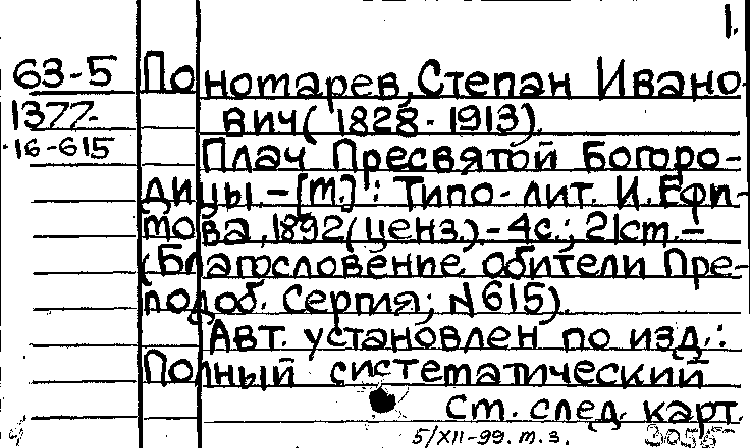 1.
63-5 Пономарев, Степан Ивано-
1377- вич (1828-1913).
16-615 Плач Пресвятой Богоро-
дицы. – [М.]: Типо-лит. И. Ефи-
мова, 1892 (ценз.). – 4с.; 21см. –
(Благословение обители Пре-
подоб. Сергия; N 615).
Авт. установлен по изд.:
Полный систематический
См. след. карт.
5/XII-99. т. з. 3055